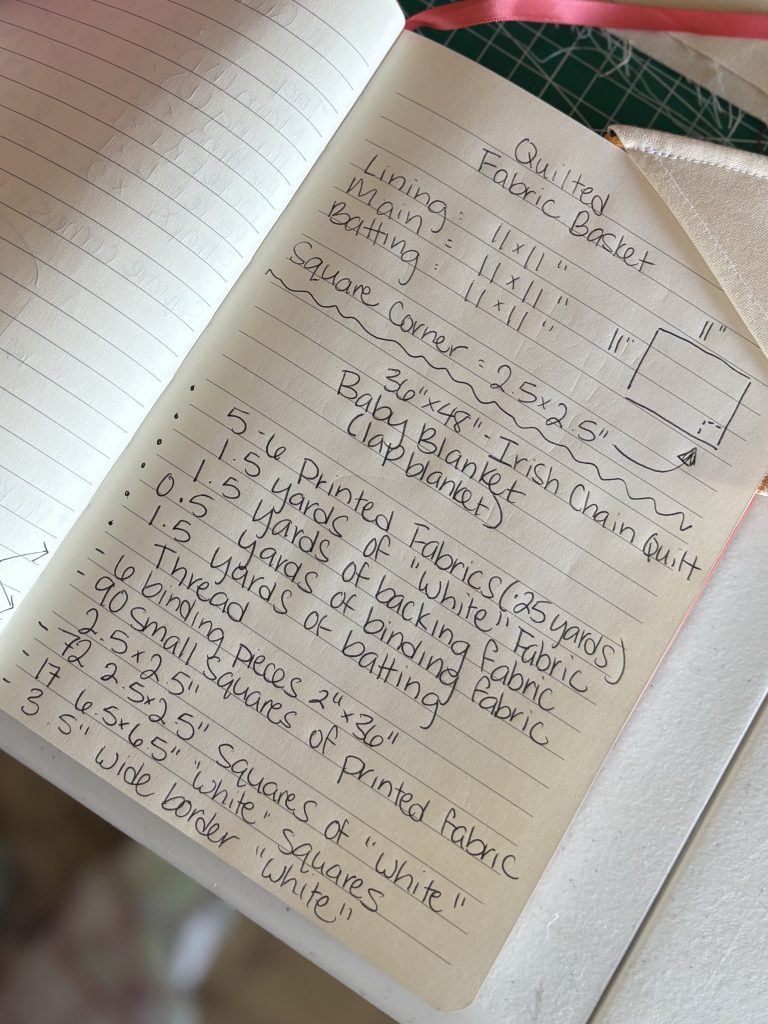 Quilted
Fabric Basket
Lining: 11 x 11"
Main = 11 x 11"
Batting: 11 x 11"
Square Corner = 2.5 x 2.5"
11"
11"
36" x 48" - Irish Chain Quilt
Baby Blanket
(lap blanket)
• 5-6 Printed Fabrics (.25 yards)
• 1.5 yards of "white" Fabric
• 1.5 yards of backing fabric
• 0.5 yards of binding fabric
• 1.5 yards of batting
• Thread
- 6 binding pieces 2" x 36"
- 90 small squares of printed fabric
2.5 x 2.5"
- 72 2.5 x 2.5" squares of "white"
- 17 6.5 x 6.5" "white" squares
- 3.5" wide border "white"